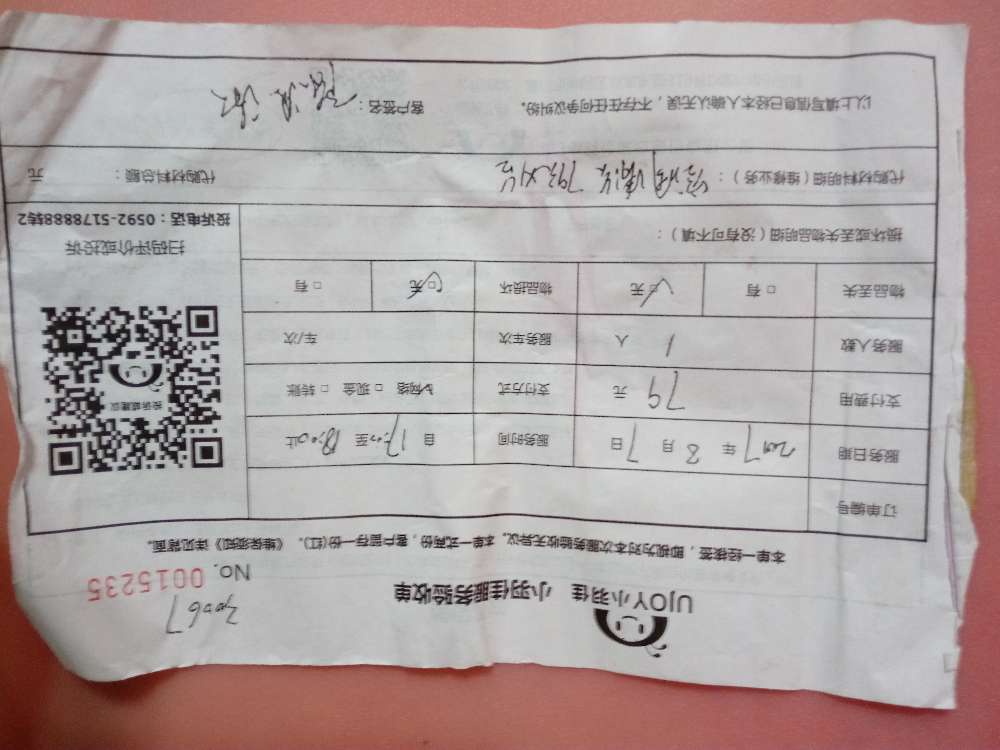 UJOY小羽佳 小羽佳服务验收单
No. 0015235
本单一经接签，即视为对本次服务验收无异议。本单一式两份，客户留存一份(红)。《维保须知》详见背面。
订单编号
服务日期 2017 年 8 月 7 日 服务时间 自 17:00 至 18:00 止
支付费用 79 元 支付方式 ☑网络 □ 现金 □ 转账
服务人数 1 人 服务车次 车/次
物品丢失 □ 有 ☑无 物品损坏 ☑无 □ 有
损坏或丢失物品明细（没有可不填）：
投诉或建议
扫码评价或投诉
投诉电话：0592-5178888转2
代购材料明细（维修业务）：空调清洗 79×1台 代购材料总额： 元
以上填写信息已经本人确认无误，不存在任何争议纠纷。 客户签名：